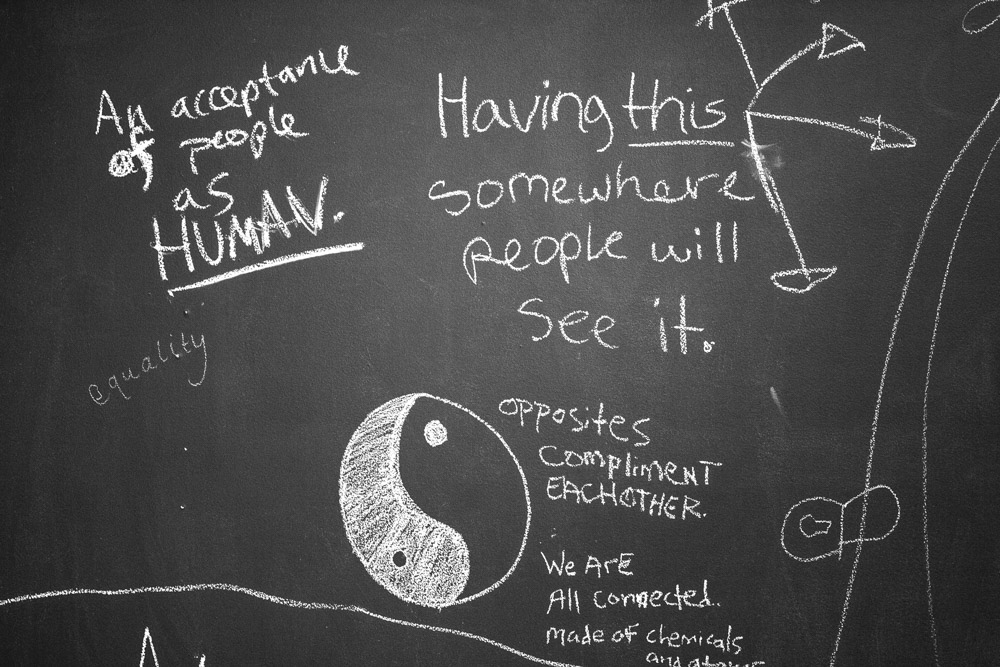 An acceptance
of people
as
HUMAN.
equality
Having this
somewhere
people will
see it.
opposites
compliment
EACHOTHER.
We ArE
All connected.
made of chemicals
and atoms